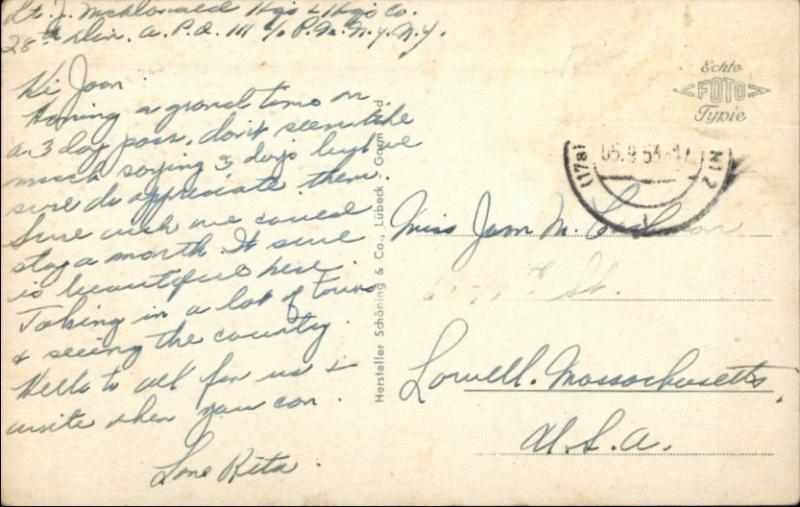 Lt. J. McDonald Hqs & Hqs Co.
28th Div. A.P.O. 111 c/o P.M. N.Y. N.Y.
Hi Joan
Having a grand time on
a 3 day pass, don't seem like
much saying 3 days but we
sure do appreciate them.
Sure wish we could
stay a month. It sure
is beautiful here.
Taking in a lot of tours
& seeing the country.
Hello to all for us &
write when you can.
Love Rita.
Hersteller Schöning & Co., Lübeck
Echte
FOTO
Typie
(17a)
05.9.53
Miss Joan M.
St.
Lowell, Massachusetts,
U.S.A.